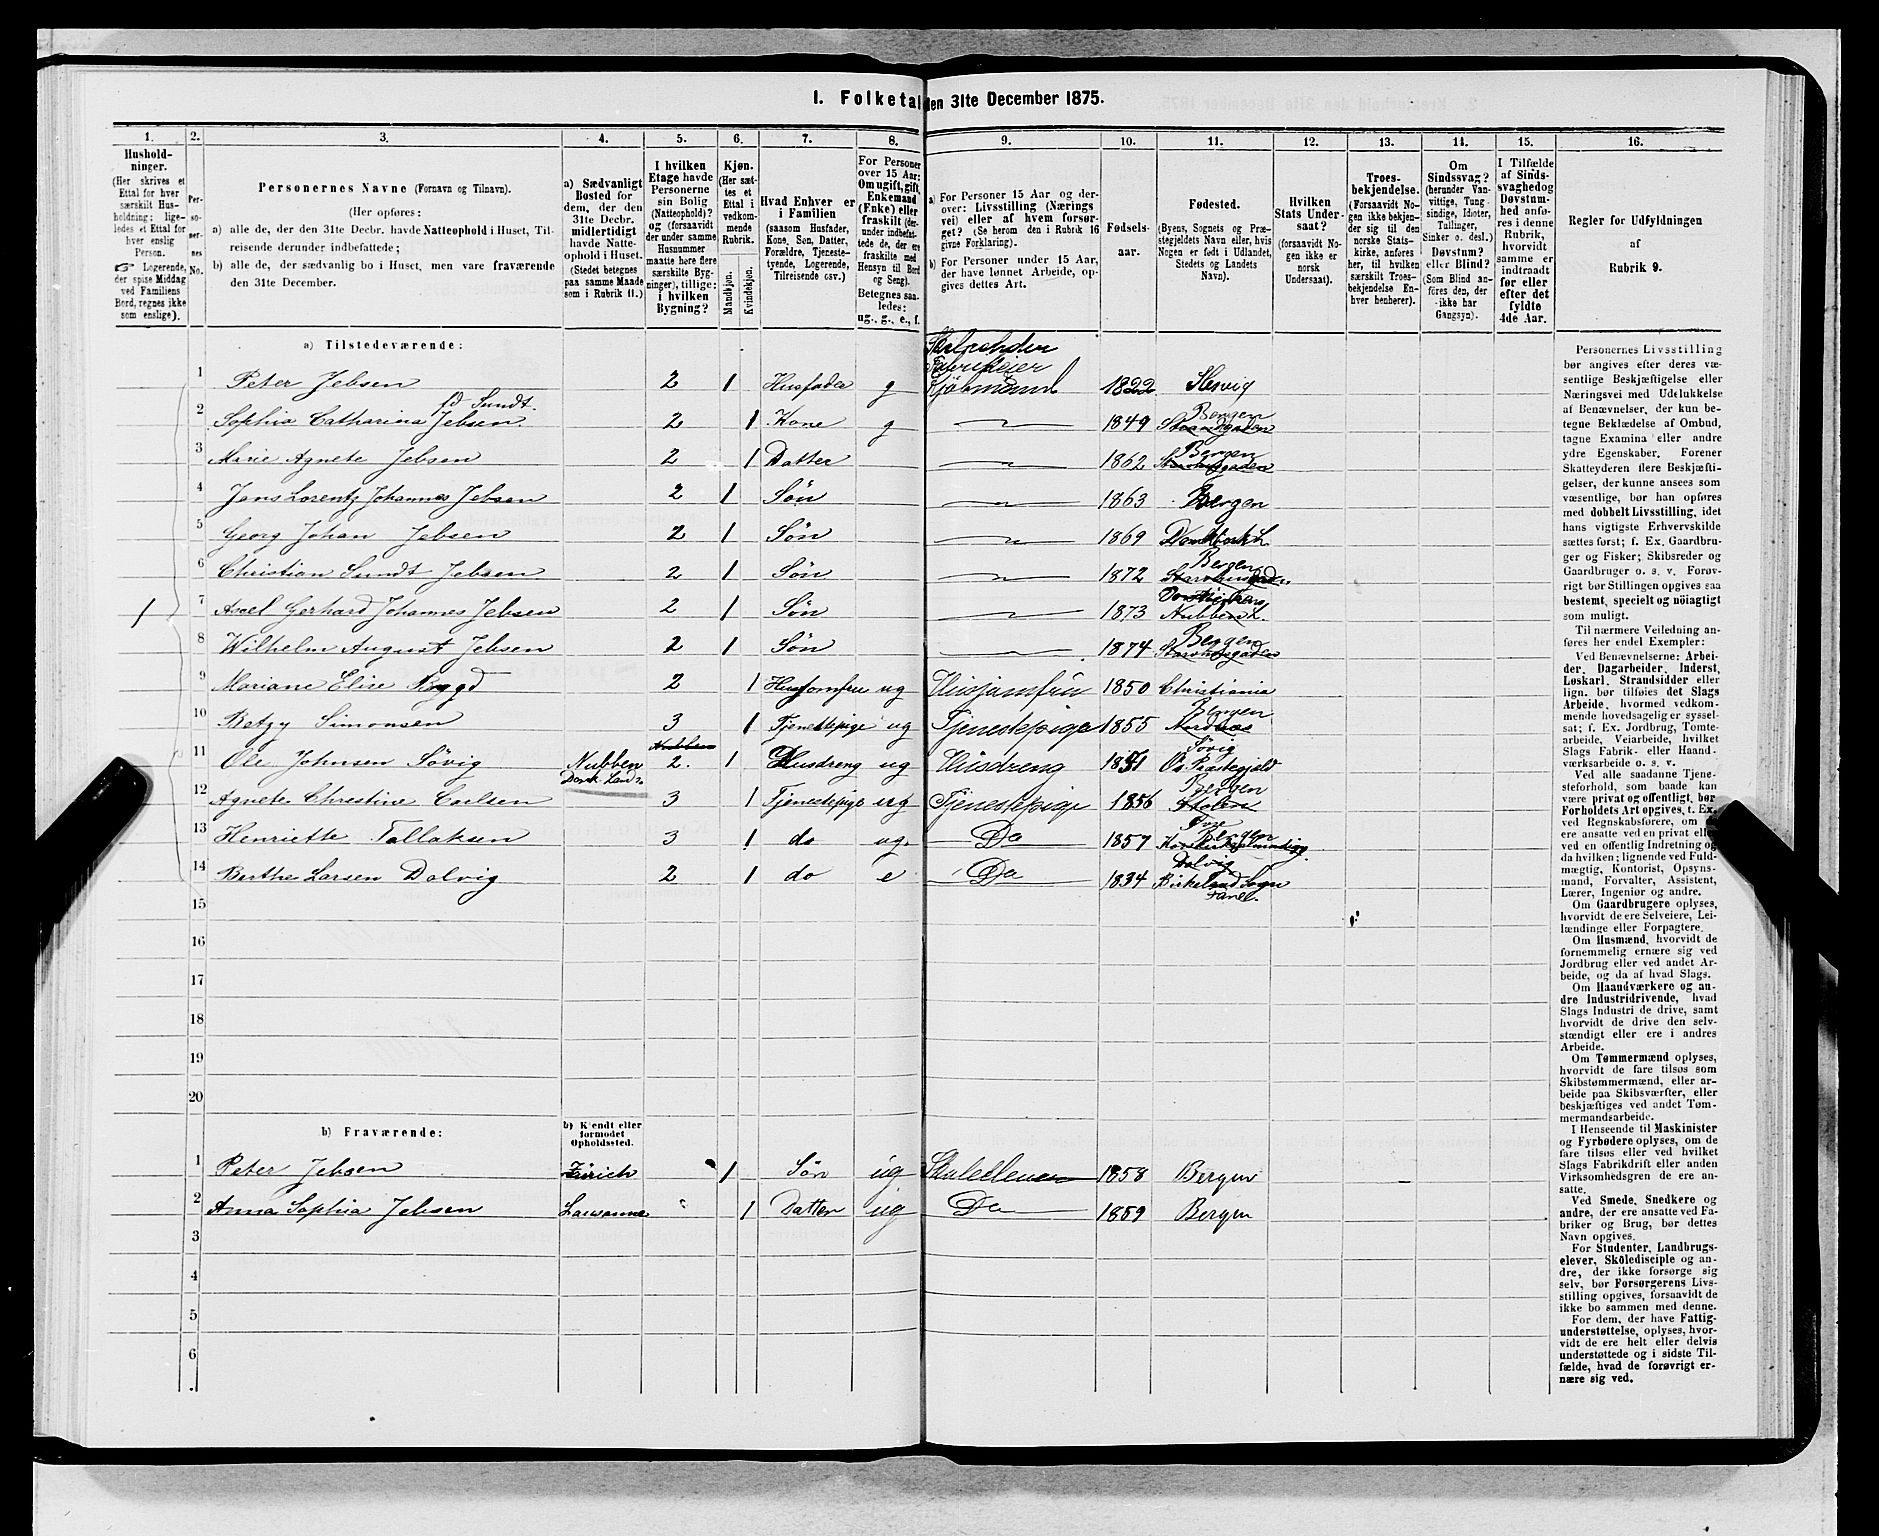 1. Folketal den 31te December 1875.
1.
Hushold-
ninger.
(Her skrives et
Ettal for hver
særskilt Hus-
holdning; lige-
ledes et Ettal for
hver enslig
Person.
Logerende,
der spise Middag
ved Familiens
Bord, regnes ikke
som enslige).
2.
Per-
so-
ner-
nes
No.
3.
Personernes Navne (Fornavn og Tilnavn).
(Her opføres:
a) alle de, der den 31te Decbr. havde Natteophold i Huset, Til-
reisende derunder indbefattede;
b) alle de, der sædvanlig bo i Huset, men vare fraværende
den 31te December.
4.
a) Sædvanligt
Bosted for
dem, der den
31te Decbr.
midlertidigt
havde Natte-
ophold i Huset.
(Stedet betegnes
paa samme Maade
som i Rubrik 11.)
5.
I hvilken
Etage havde
Personerne
sin Bolig
(Natteophold)?
og (forsaavidt
der under samme
Husnummer
maatte høre flere
særskilte Byg-
ninger), tillige:
i hvilken
Bygning?
6.
Kjøn.
(Her sæt-
tes et
Ettal i
vedkom-
mende
Rubrik.
Mandkjøn.
Kvindekjøn.
7.
Hvad Enhver er
i Familien
(saasom Husfader,
Kone, Søn, Datter,
Forældre, Tjeneste-
tyende, Logerende,
Tilreisende osv.)
8.
For Personer
over 15 Aar:
Om ugift, gift,
Enkemand
(Enke) eller
fraskilt (der-
under indbefat-
tede de, der ere
fraskilte med
Hensyn til Bord
og Seng).
Betegnes saa-
ledes:
ug., g., e., f.
9.
a) For Personer 15 Aar og der-
over: Livsstilling (Nærings
vei) eller af hvem forsør-
get? (Se herom den i Rubrik 16
givne Forklaring).
b) For Personer under 15 Aar,
der have lønnet Arbeide, op-
gives dettes Art.
10.
Fødsels-
aar.
11.
Fødested.
(Byens, Sognets og Præ-
stegjeldets Navn eller, hvis
Nogen er født i Udlandet,
Stedets og Landets
Navn).
12.
Hvilken
Stats Under-
saat?
(forsaavidt No-
gen ikke er
norsk
Undersaat).
13.
Troes-
bekjendelse.
(Forsaavidt No-
gen ikke bekjen-
der sig til den
norske Stats-
kirke, anføres
her, til hvilken
særskilt Troes-
bekjendelse En-
hver henhører).
14.
Om
Sindssvag?
(herunder Van-
vittige, Tung
sindige, Idioter,
Tullinger,
Sinker o. desl.)
Døvstum?
eller Blind?
(Som Blind an-
føres den, der
ikke har
Gangsyn).
15.
I Tilfælde
af Sinds-
svaghed og
Døvstum-
hed anfø-
res i denne
Rubrik,
hvorvidt
samme er
indtraadt
før eller
efter det
fyldte
4de Aar.
16.
Regler for Udfyldningen
af
Rubrik 9.
a) Tilstedeværende:
1 Peter Jebsen 2 1 Husfader g Fabrikeier Kjøbmand 1822 Slesvig
2 Sophia Catharina Jebsen fd Sundt. 2 1 Kone g 1849 Bergen Strandgaden
3 Marie Agnete Jebsen 2 1 Datter 1862 Bergen
4 Jens Lorentz Johannes Jebsen 2 1 Søn 1863 Bergen
5 Georg Johan Jebsen 2 1 Søn 1869
6 Christian Sundt Jebsen 2 1 Søn 1872 Bergen
1 7 Axel Gerhard Johannes Jebsen 2 1 Søn 1873
8 Wilhelm August Jebsen 2 1 Søn 1874 Bergen
9 Mariane Elise Bygd 2 1 Husjomfru ug Husjomfru 1850 Christiania
10 Betzy Simonsen 3 1 Tjenestepige ug Tjenestepige 1855 Bergen Nordnæs
11 Ole Johnsen Søvig Nubben Nubben 2. 1 Husdreng ug Husdreng 1851 Søvig Os Præstegjæld
12 Agnete Christine Carlsen 3 1 Tjenestepige ug Tjenestepige 1856 Bergen
13 Henriette Tollaksen 3 1 do ug. Do 1857 Bergen
14 Berthe Larsen Dalvig 2 1 do e Do 1834 Dalvig Birkeland Sogn Fane
15
16
17
18
19
20
b) Fraværende:
b) Kjendt eller
formodet
Opholdssted.
1 Peter Jebsen Zürich 1 Søn ug Skoleeleven 1858 Bergen
2 Anna Sophia Jebsen Lausanne 1 Datter ug Do 1859 Bergen
3
4
5
6
Personernes Livsstilling
bør angives efter deres væ-
sentlige Beskjæftigelse eller
Næringsvei med Udelukkelse
af Benævnelser, der kun be-
tegne Beklædelse af Ombud,
tagne Examina eller andre
ydre Egenskaber. Forener
Skatteyderen flere Beskjæfti-
gelser, der kunne ansees som
væsentlige, bør han opføres
med dobbelt Livsstilling, idet
hans vigtigste Erhvervskilde
sættes først; f. Ex. Gaardbru-
ger og Fisker; Skibsreder og
Gaardbruger o. s. v. Forøv-
rigt bør Stillingen opgives saa
bestemt, specielt og nöiagtigt
som muligt.
Til nærmere Veiledning an-
føres her endel Exempler:
Ved Benævnelserne: Arbei-
der, Dagarbeider, Inderst,
Løskarl, Strandsidder eller
lign. bør tilføies det Slags
Arbeide, hvormed vedkom-
mende hovedsagelig er syssel-
sat; f. Ex. Jordbrug, Tomte-
arbeide, Veiarbeide, hvilket
Slags Fabrik- eller Haand-
værksarbeide o. s. v.
Ved alle saadanne Tjene-
steforhold, som baade kan
være privat og offentligt, bør
Forholdets Art opgives, t. Ex.
ved Regnskabsførere, om de
ere ansatte ved en privat eller
ved en offentlig Indretning og
da hvilken; lignende ved Fuld-
mægtig, Kontorist, Opsyns-
mand, Forvalter, Assistent,
Lærer, Ingeniør og andre.
Om Gaardbrugere oplyses,
hvorvidt de ere Selveiere, Lei-
lændinge eller Forpagtere.
Om Husmænd, hvorvidt de
fornemmelig ernære sig ved
Jordbrug eller ved andet Ar-
beide, og da af hvad Slags.
Om Haandværkere og an-
dre Industridrivende, hvad
Slags Industri de drive, samt
hvorvidt de drive den selv-
stændigt eller ere i andres
Arbeide.
Om Tømmermænd oplyses,
hvorvidt de fare tilsøs som
Skibstømmermænd, eller ar-
beide paa Skibsværfter, eller
beskjæftiges ved andet Tøm-
mermandsarbeide.
I Henseende til Maskinister
og Fyrbødere oplyses, om de
fare tilsøs eller ved hvilket
Slags Fabrikdrift eller anden
Virksomhedsgren de ere an-
satte.
Ved Smede, Snedkere og
andre, der ere ansatte ved Fa-
briker og Brug, bør dettes
Navn opgives.
For Studenter, Landbrugs-
elever, Skoledisciple og an-
dre, der ikke forsørge sig
selv, bør Forsørgerens Livs-
stilling opgives, forsaavidt de
ikke bo sammen med denne.
For dem, der have Fattig-
understøttelse, oplyses, hvor-
vidt de ere helt eller delvis
understøttede og i sidste Til-
fælde, hvad de forøvrigt er-
nære sig ved.